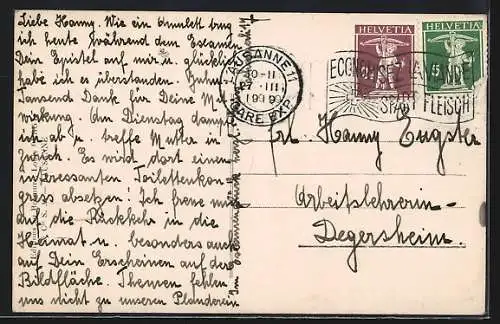 Liebe Hanny. Wie ein Amulett trug
ich heute während dem Examen
Dein Epistel auf mir u. glücklich
habe ich es überstanden. Zehn-
Tausend Dank für Deine Mit-
wirkung. Am Dienstag dampf
ich ab u. treffe Mutter in
Zürich. Es wird dort einen
interessanten Toilettenkon-
gress absetzen! Ich freue mich
auf die Rückkehr in die
Heimat u. besonders auch
auf Dein Erscheinen auf der
Bildfläche. Themen fehlen
uns nicht zu unseren Plauderein
LAUSANNE 1
27 III
GARE EXP.
HELVETIA
HELVETIA
ECONOMISEZ LA VIANDE
SPART FLEISCH
Frl. Hanny Eugster
Arbeitslehrerin
Degersheim